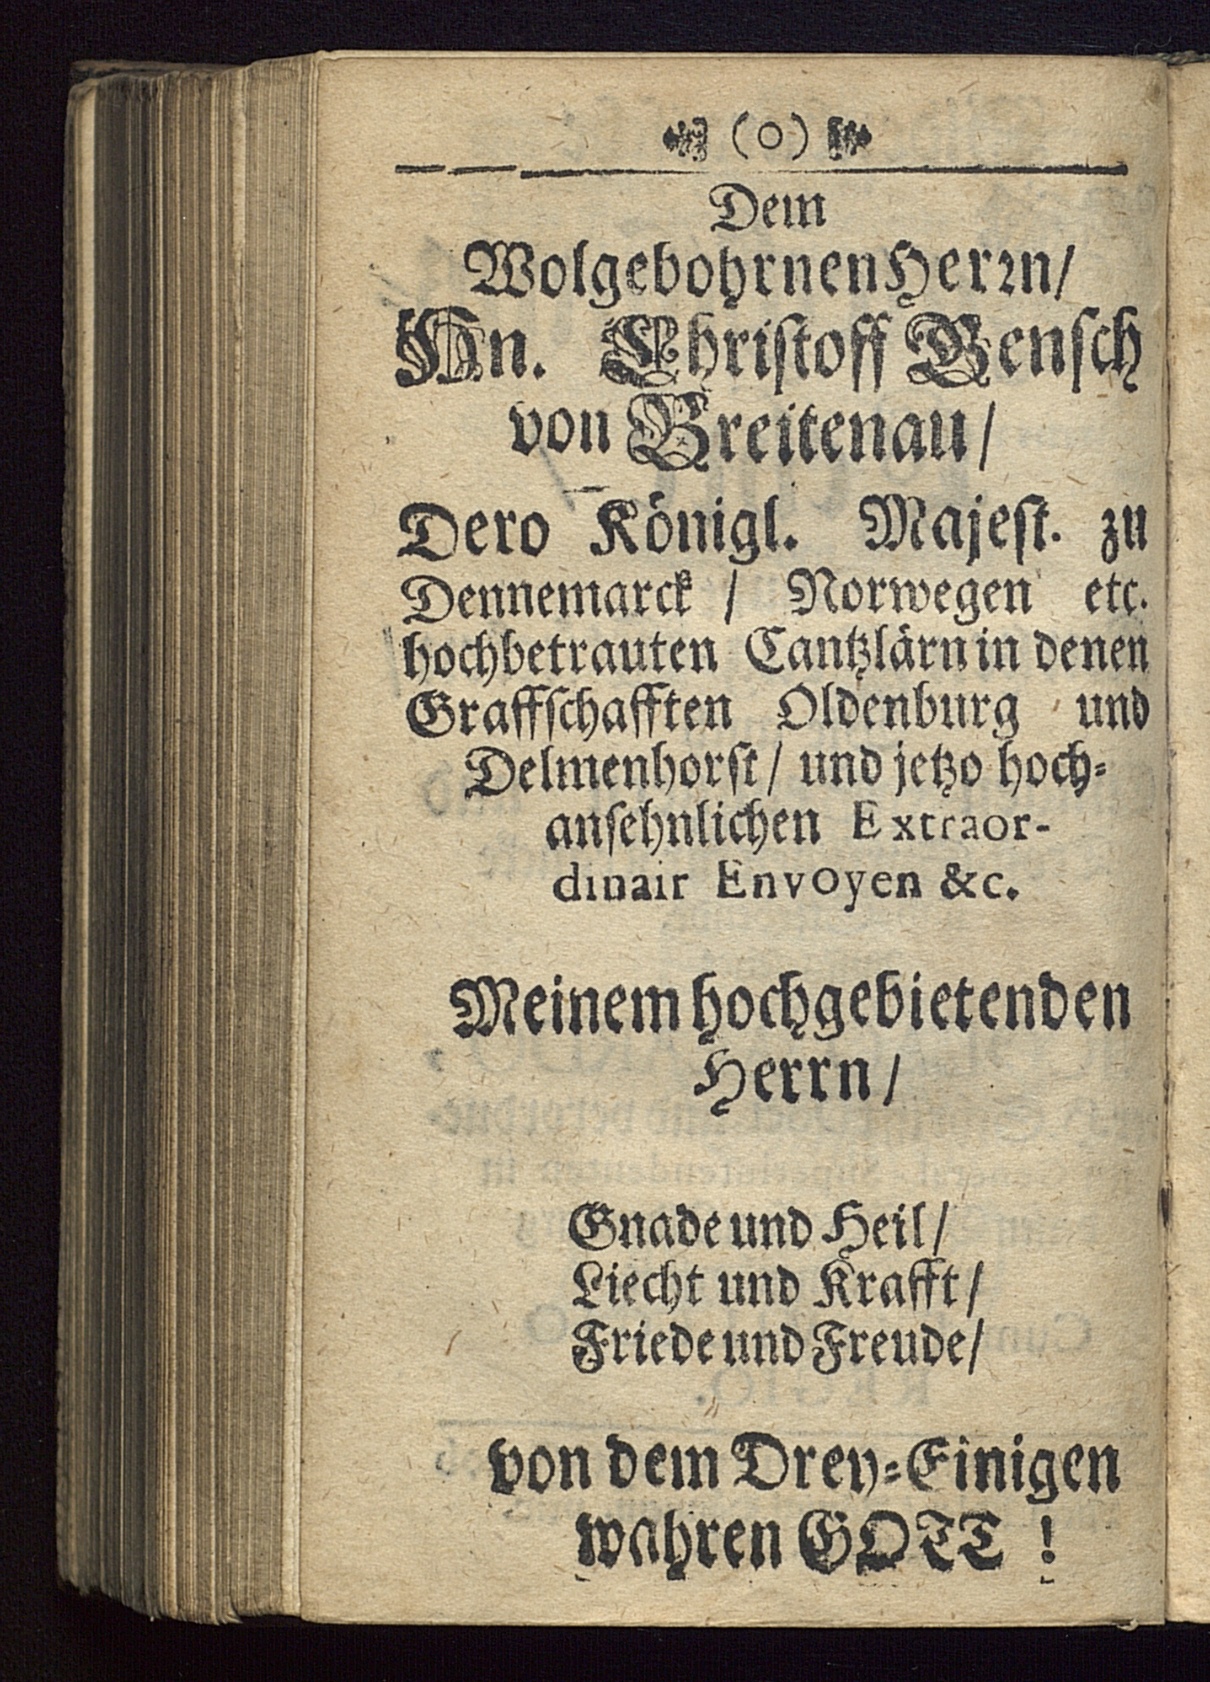 (o)
Dem
Wolgebohrnen Herrn/
Hn. Christoff Gensch
von Breitenau/
Dero Königl. Majest. zu
Dennemarck / Norwegen etc.
hochbetrauten Cantzlärn in denen
Graffschafften Oldenburg und
Delmenhorst/ und jetzo hoch-
ansehnlichen Extraor-
dinair Envoyen &c.
Meinem hochgebietenden
Herrn/
Gnade und Heil/
Liecht und Krafft/
Friede und Freude/
von dem Drey-Einigen
wahren GOTT !